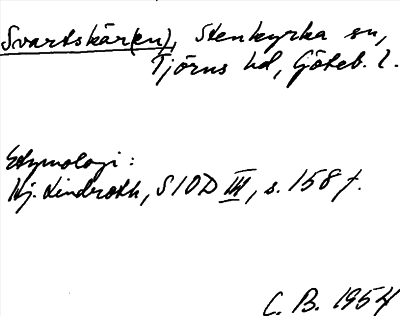 Svartskär(en), Stenkyrka sn,
Tjörns hd, Göteb. l.
Etymologi:
Hj. Lindroth, SIOD III, s. 158 f.
C. B. 1954